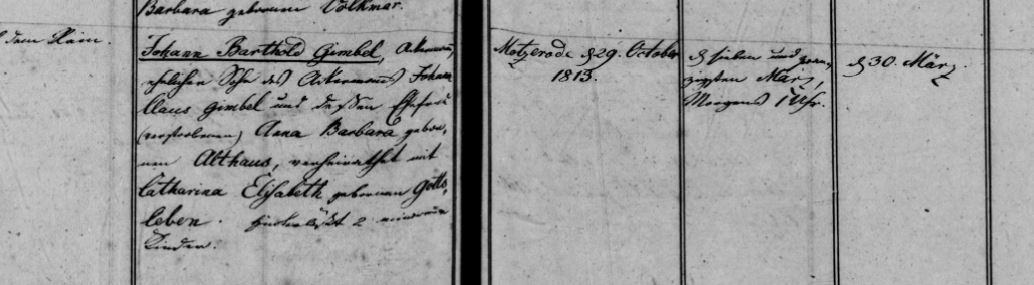 Barbara geborenen Völkmar.
dem Rain.
Johann Barthold Gimbel, Ackermann,
ehelicher Sohn des Ackermanns Johann
Claus Gimbel und dessen Ehefrau
(verstorbenen) Anna Barbara, gebor-
nen Althaus, verheirathet mit
Catharina Elisabeth gebornen Gotts-
leben. Hinterläßt 2 minorenne
Kinder.
Motzerode d 29. October
1813.
d sieben und zwan-
zigsten März,
Morgens 1 Uhr.
d 30 März.